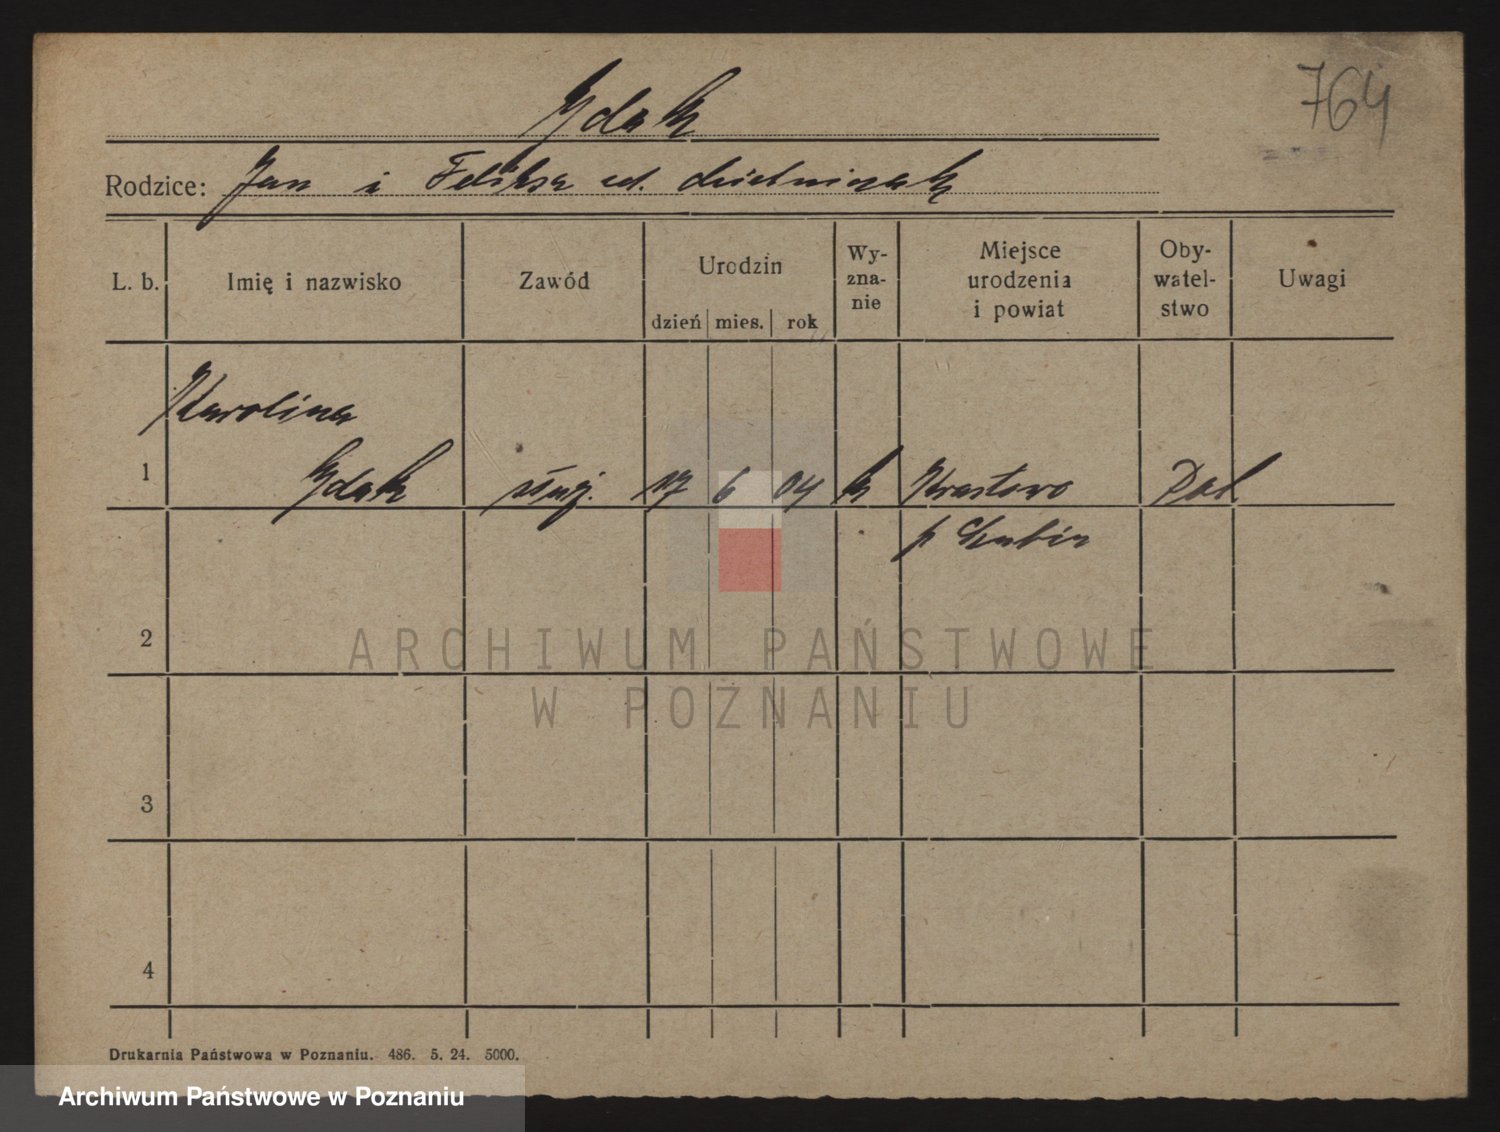 764
Gdak
Rodzice: Jan i Feliksa ur. Dzietniczak
L. b.
Imię i nazwisko
Zawód
Urodzin
dzień mies. rok
Wy-
zna-
nie
Miejsce
urodzenia
i powiat
Oby-
watel-
stwo
Uwagi
Karolina
1 Gdak służ. 17 6 04 k Pol
p Szubin
2
3
4
ARCHIWUM PAŃSTWOWE
W POZNANIU
Drukarnia Państwowa w Poznaniu. 486. 5. 24. 5000.
Archiwum Państwowe w Poznaniu